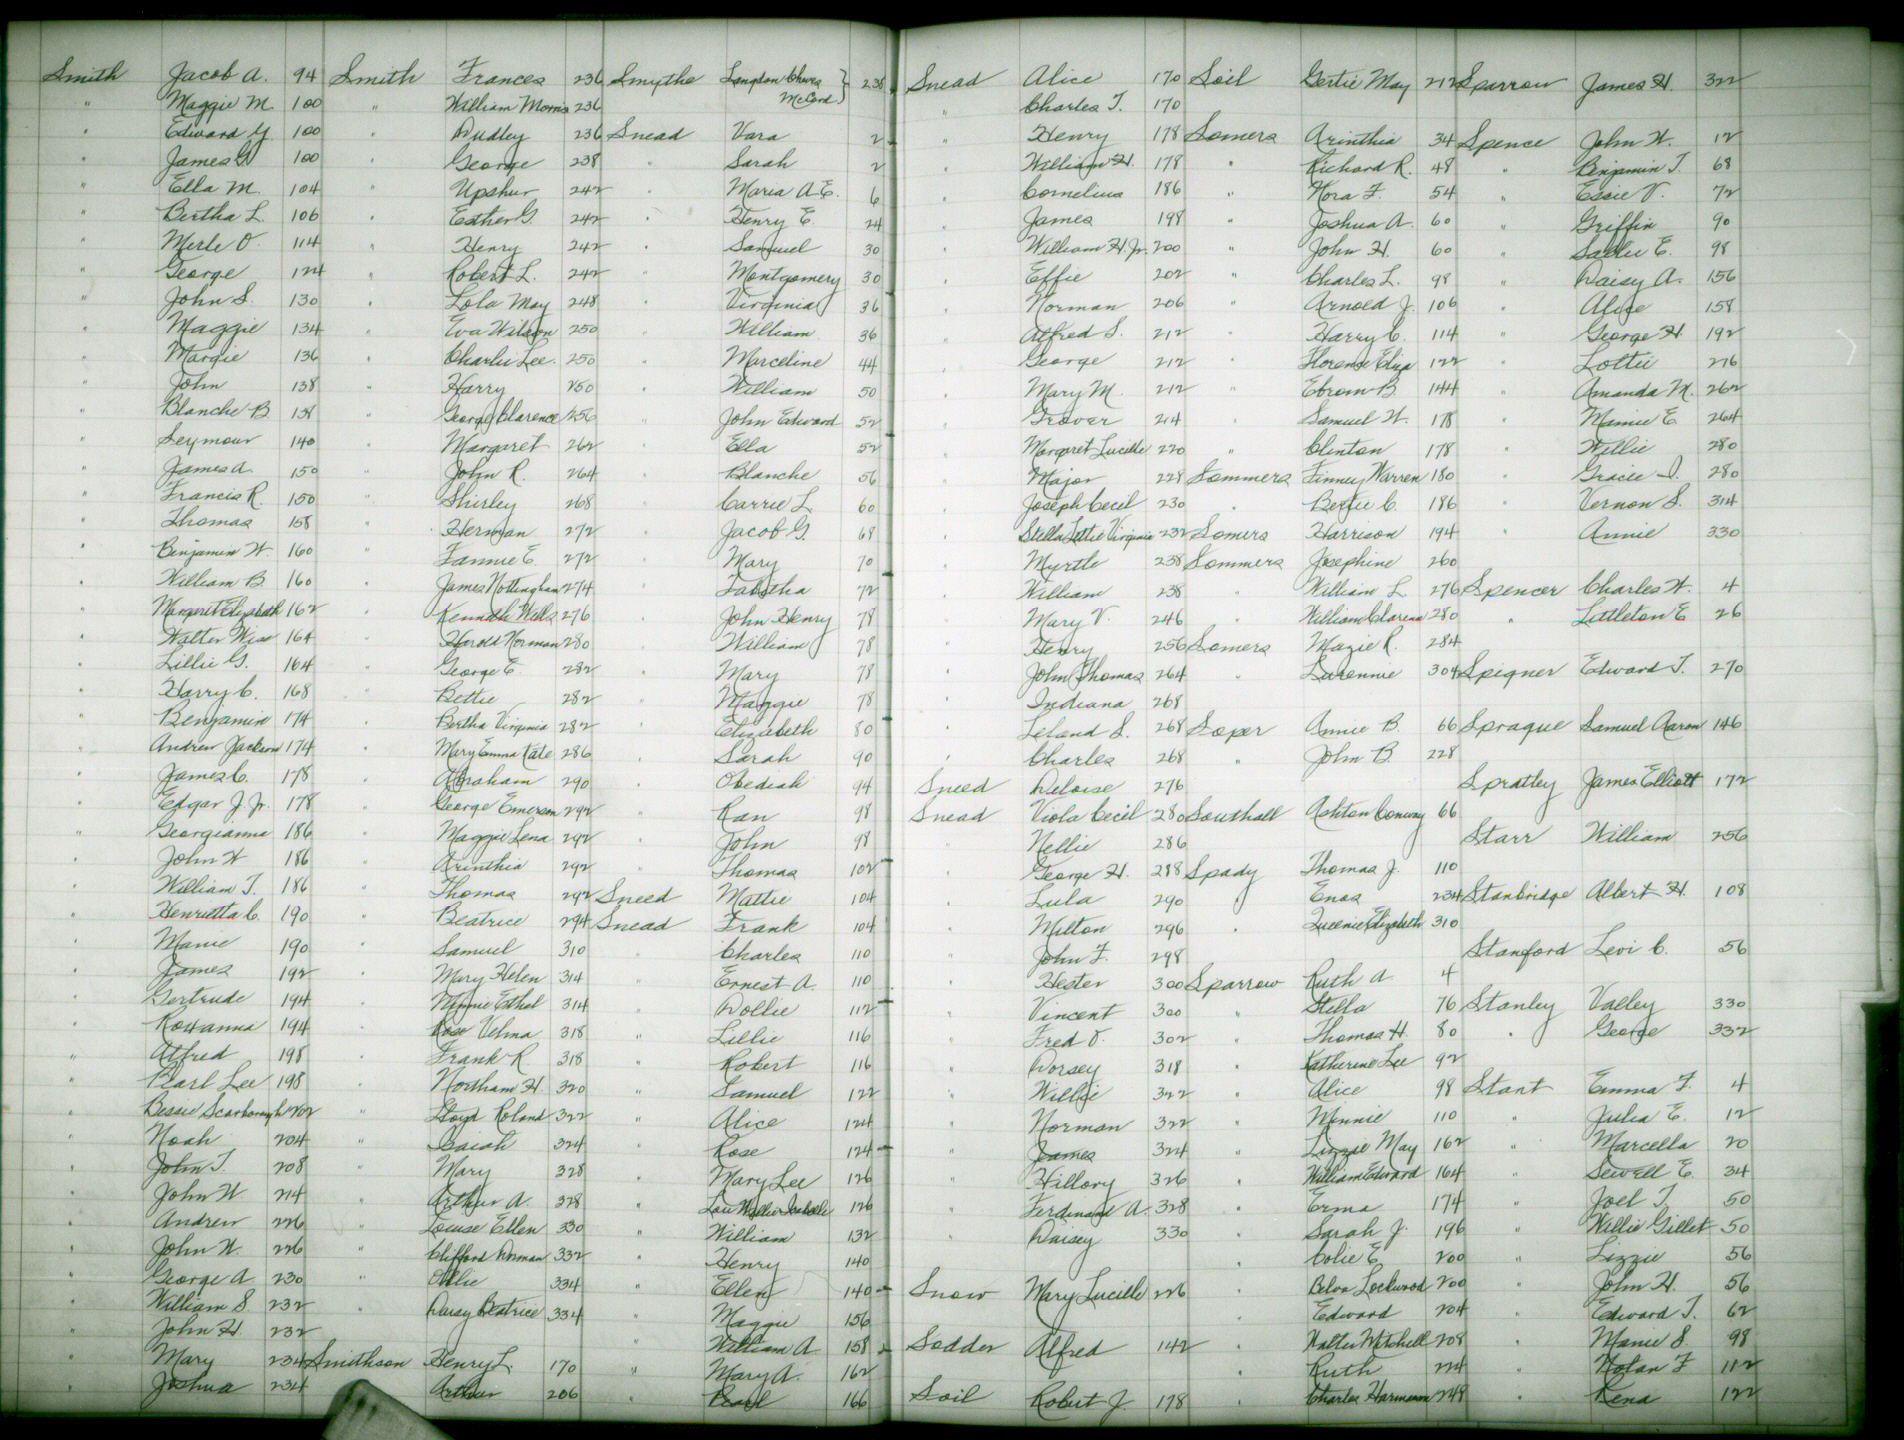 Smith Jacob A. 94
" Maggie M. 100
" Edward Y. 100
" James G. 100
" Ella M. 104
" Bertha L. 106
" Merle O. 114
" George 124
" John S. 130
" Maggie 134
" Margie 136
" John 138
" Blanche B. 138
" Seymour 140
" James A. 150
" Francis R. 150
" Thomas 158
" Benjamin W. 160
" William B. 160
" Margaret Elizabeth 162
" Walter Wise 164
" Lillie G. 164
" Harry C. 168
" Benjamin 174
" Andrew Jackson 174
" James C. 178
" Edgar J. Jr. 178
" Georgianna 186
" John W 186
" William T. 186
" Henrietta C. 190
" Manie 190
" James 192
" Gertrude 194
" Roxanna 194
" Alfred 198
" Pearl Lee 198
" Bessie Scarborough 202
" Noah 204
" John T. 208
" John W 214
" Andrew 226
" John W. 226
" George A 230
" William S 232
" John H. 232
" Mary 234
" Joshua 234
Smith Frances 236
" William Morris 236
" Dudley 236
" George 238
" Upshur 242
" Esther G. 242
" Henry 242
" Robert L. 242
" Lola May 248
" Eva Wilson 250
" Charlie Lee 250
" Harry 250
" George Clarence 256
" Margaret 262
" John R. 264
" Shirley 268
" Herman 272
" Fannie E. 272
" James Nottingham 274
" Kenneth Wells 276
" Harold Norman 280
" George E. 282
" Bettie 282
" Bertha Virginia 282
" Mary Emma Kate 286
" Abraham 290
" George Emerson 292
" Maggie Lena 292
" Arinthia 292
" Thomas 292
" Beatrice 294
" Samuel 310
" Mary Helen 314
" Minnie Ethel 314
" Rose Velma 318
" Frank R 318
" Northam H. 320
" Lloyd Roland 322
" Isaiah 324
" Mary 328
" Arthur A. 328
" Louise Ellen 330
" Clifford Norman 332
" Ollie 334
" Daisy Beatrice 334
Smithson Henry L. 170
Arthur 206
Smythe Langdon Cheves McCord } 238
Snead Vara 2
" Sarah 2
" Maria A E. 6
" Henry E. 24
" Samuel 30
" Montgomery 30
" Virginia 36
" William 36
" Marceline 44
" William 50
" John Edward 52
" Ella 52
" Blanche 56
" Carrie L. 60
" Jacob G. 68
" Mary 70
" Tabitha 72
" John Henry 78
" William 78
" Mary 78
" Maggie 78
" Elizabeth 80
" Sarah 90
" Obediah 94
" Ran 98
" John 98
" Thomas 102
Sneed Mattie 104
Snead Frank 104
" Charles 110
" Ernest A. 110
" Dollie 112
" Lillie 116
" Robert 116
" Samuel 122
" Alice 124
" Rose 124
" Mary Lee 126
" 126
" William 132
" Henry 140
" Ellen 140
" Maggie 156
" William A 158
" Mary A. 162
" Pearl 166
Snead Alice 170
" Charles T. 170
" Henry 178
" William H. 178
" Cornelius 186
" James 198
" William H. Jr. 200
" Effie 202
" Norman 206
" Alfred S. 212
" George 212
" Mary M. 212
" Grover 214
" Margaret Lucille 220
" Major 228
" Joseph Cecil 230
" Stella Lottie Virginia 232
" Myrtle 238
" William 238
" Mary V. 246
" Henry 256
" John Thomas 264
" Indiana 268
" Leland S. 268
" Charles 268
Sneed Deloise 276
Snead Viola Cecil 280
" Nellie 286
" George H. 288
" Lula 290
" Milton 296
" John F. 298
" Hester 300
" Vincent 300
" Fred V. 302
" Dorsey 318
" Willie 322
" Norman 322
" James 324
" Hillory 326
" Ferdinand A. 328
" Daisey 330
Snow Mary Lucille 226
Sodder Alfred 142
Soil Robert J. 178
Soil Gertie May 212
Somers Arinthia 34
" Richard R. 48
" Nora F. 54
" Joshua A. 60
" John H. 60
" Charles L. 98
" Arnold J. 106
" Harry C. 114
" Florence Eliza 122
" Ebron B. 144
" Samuel W. 178
" Clinton 178
Sommers Finney Warren 180
" Bettie C. 186
Somers Harrison 194
Sommers Josephine 260
" William L. 276
" William Clarence 280
Somers Mazie R. 284
" Luvennie 304
Soper Annie B. 66
" John B. 228
Southall Ashton Conway 66
Spady Thomas J. 110
" Enos 234
" Queenie Elizabeth 310
Sparrow Ruth A. 4
" Stella 76
" Thomas H. 80
" Katherine Lee 92
" Alice 98
" Minnie 110
" Lizzie May 162
" William Edward 164
" Erma 174
" Sarah J. 196
" Colie E. 200
" Belva Lockwood 200
" Edward 204
" Walter Mitchell 208
" Ruth 224
" Charles Harmanson 248
Sparrow James H. 322
Spence John W. 12
" Benjamin T. 68
" Essie V. 72
" Griffin 90
" Sallie E. 98
" Daisy A. 156
" Alice 158
" George H. 192
" Lottie 216
" Amanda M. 262
" Mamie E. 264
" Willie 280
" Gracie I. 280
" Vernon S. 314
" Annie 330
Spencer Charles W. 4
" Littleton E 26
Spigner Edward T. 270
Sprague Samuel Aaron 146
Spratley James Elliott 172
Starr William 256
Stanbridge Albert H. 108
Stanford Levi C. 56
Stanley Valley 330
" George 332
Stant Emma F. 4
" Julia E. 12
" Marcella 20
" Sewell E. 34
" Joel T. 50
" Willie Gillet 50
" Lizzie 56
" John H. 56
" Edward T. 62
" Manie S 98
" Nolan F 112
" Rena 122